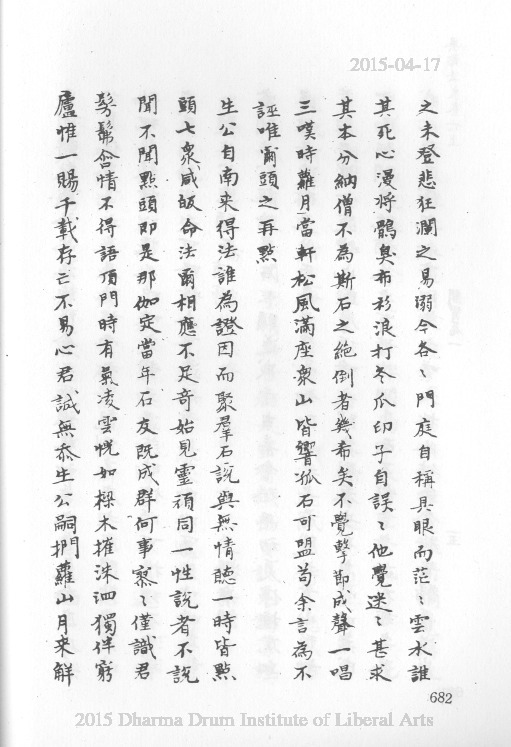 2015-04-17
之未登悲狂瀾之易溺今各〻門庭自稱具眼而茫〻雲水誰
其死心漫將鶻臭布衫浪打冬瓜印子自誤〻他覺迷〻甚求
其本分衲僧不為斯石之絶倒者幾希矣不覺擊節成聲一唱
三嘆時蘿月當軒松風滿座衆山皆響孤石可盟苟余言為不
誣唯爾頭之再點
生公自南来得法誰為證因而聚羣石說與無情聽一時皆點
頭七衆咸皈命法爾相應不足奇始見靈頑同一性說者不說
聞不聞點頭即是那伽定當年石友既成群何事寥〻僅識君
髣髴會情不得語頂門時有氣凌雲恍如樑木摧洙泗獨伴窮
廬惟一賜千載存亡不易心君誠無忝生公嗣捫蘿山月来解
682
2015 Dharma Drum Institute of Liberal Arts